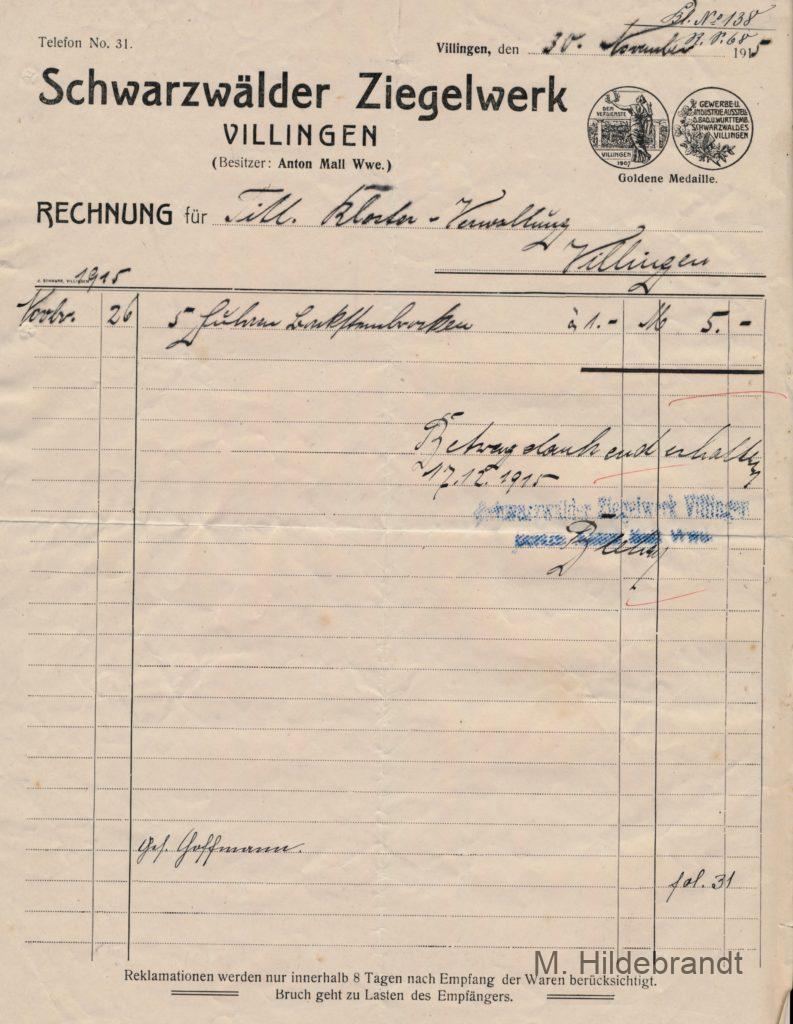 Bl. No 138
Telefon No. 31.
Villingen, den 30. November 1915
Schwarzwälder Ziegelwerk
VILLINGEN
(Besitzer: Anton Mall Wwe.)
DEM VERDIENSTE
VILLINGEN
1907
GEWERBE-U.
INDUSTRIE-AUSSTELL.
D. BAD. U. WÜRTTEMB.
SCHWARZWALDES
VILLINGEN
Goldene Medaille.
RECHNUNG für Titl. Kloster-Verwaltung
Villingen
1915
Novbr. 26 5 Fuhren Backsteinbrocken à 1.- M 5.-
Betrag dankend erhalten
17.12.1915
Schwarzwälder Ziegelwerk Villingen
Wwe.
Ges. Hoffmann.
fol. 31
Reklamationen werden nur innerhalb 8 Tagen nach Empfang der Waren berücksichtigt.
Bruch geht zu Lasten des Empfängers.
M. Hildebrandt